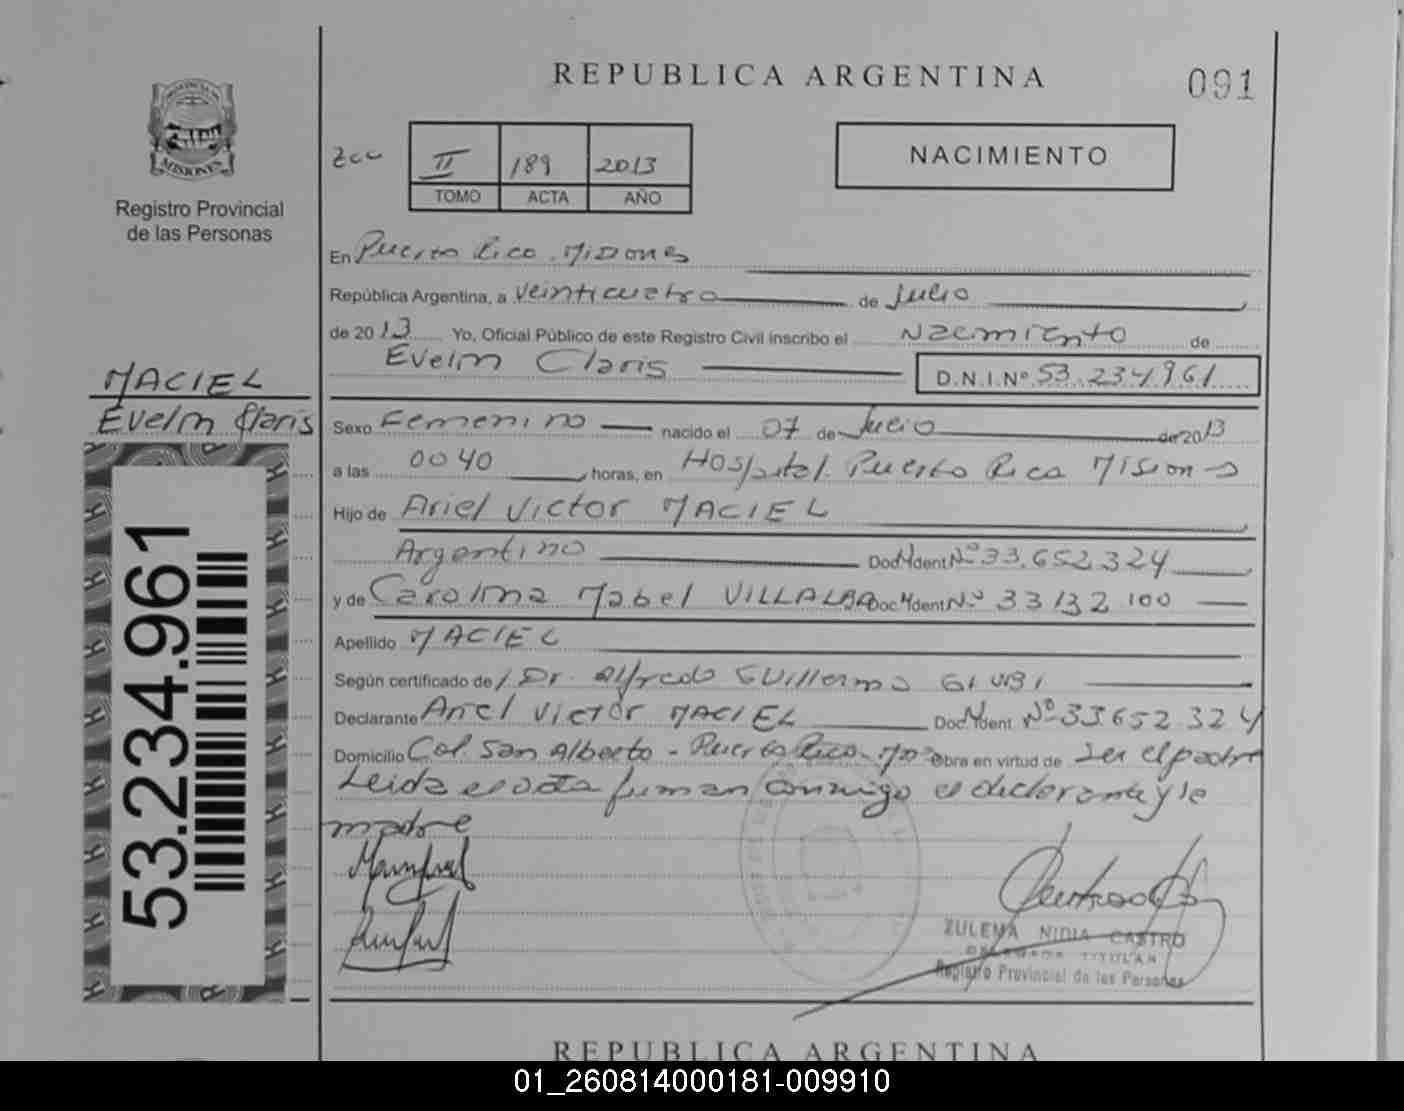 REPUBLICA ARGENTINA
091
PROVINCIA DE
MISIONES
Registro Provincial
de las Personas
II 189 2013
TOMO ACTA AÑO
NACIMIENTO
En Puerto Rico. Misiones
República Argentina, a veinticuatro de Julio
de 2013 Yo, Oficial Público de este Registro Civil inscribo el Nacimiento de
Evelin Claris D.N.I.Nº 53.234.961
MACIEL
Evelin Claris
Sexo Femenino nacido el 07 de Julio de 2013
a las 0040 horas, en Hospital. Puerto Rico Misiones
Hijo de Ariel Victor MACIEL
Argentino Doc. Ident Nº 33.652.324
y de Carolina Mabel VILLALBA Doc. Ident Nº 33132100
Apellido MACIEL
Según certificado de Dr. Alfredo Guillermo
Declarante Ariel Victor MACIEL Doc. Ident. Nº 33652324
Domicilio Col. San Alberto - Puerto Rico - Obra en virtud de Ser el padre
Leida el acta firman conmigo el declarante y la
madre
53.234.961
ZULEMA NIDIA CASTRO
DELEGADA TITULAR
Registro Provincial de las Personas
REPUBLICA ARGENTINA
01_260814000181-009910